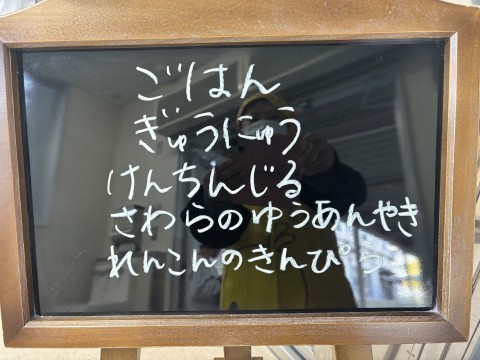 ごはん
ぎゅうにゅう
けんちんじる
さわらのゆうあんやき
れんこんのきんぴら